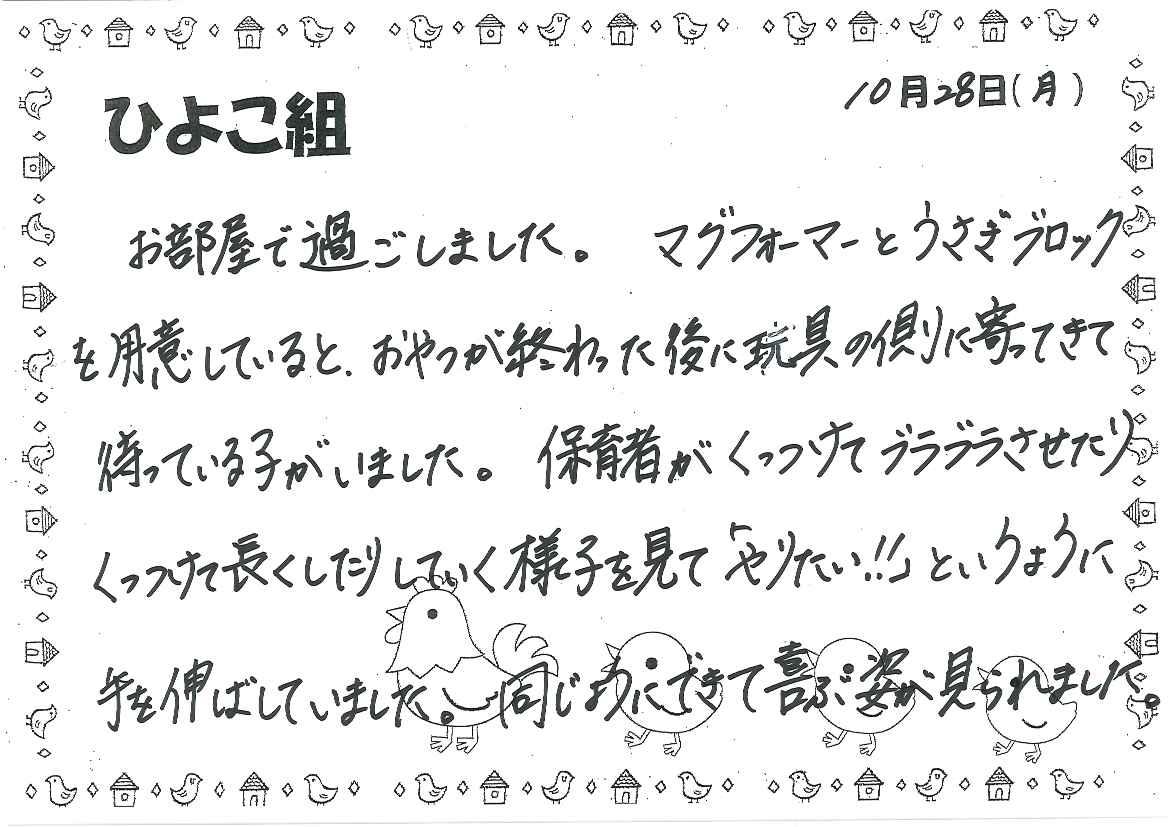 ひよこ組
10月28日(月)
お部屋で過ごしました。 マグフォーマーとうさぎブロック
を用意していると、おやつが終わった後に玩具の側に寄ってきて
待っている子がいました。 保育者がくっつけてブラブラさせたり
くっつけて長くしたりしていく様子を見て「やりたい!!」というように
手を伸ばしていました。同じようにできて喜ぶ姿が見られました。